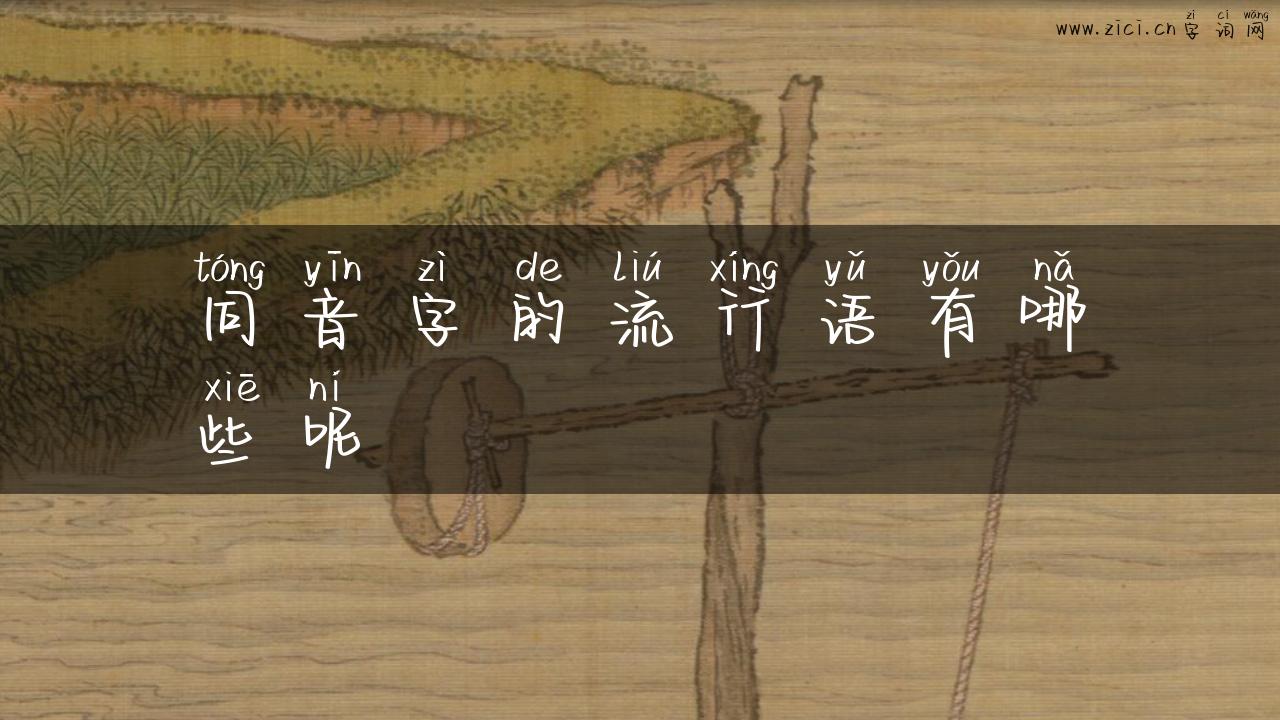 zì cí wǎng
www.zici.cn 字 词 网
tóng yīn zì de liú xíng yǔ yǒu nǎ
同 音 字 的 流 行 语 有 哪
xiē ní
些 呢